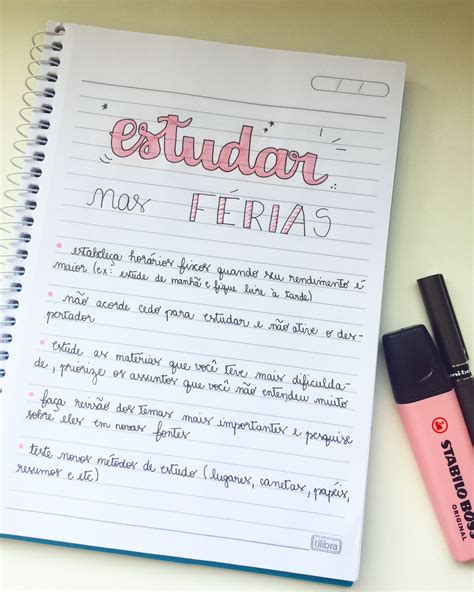 estudar
nas FÉRIAS
estabeleça horários fixos quando seu rendimento é
maior (ex: estude de manhã e fique livre à tarde)
não acorde cedo para estudar e não ative o des-
pertador
estude as matérias que você teve mais dificulda-
de, priorize os assuntos que você não entendeu muito
faça revisão dos temas mais importantes e pesquise
sobre eles em novas fontes
teste novos métodos de estudo (lugares, canetas, papéis,
resumos e etc)
tilibra
STABILO BOSS
ORIGINAL